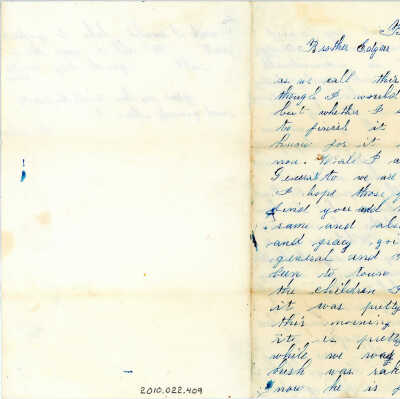 Brother Edgar
as we call this
though I would
but whether I
to finish it
know for it
now. Well I a
General to we are
I hope those
find you and
same and als
and gracy goi
general and
been to town
the children I
it was pretty
this morning
it is pretty
while we was
bush was rak
now he is
2010.022.409